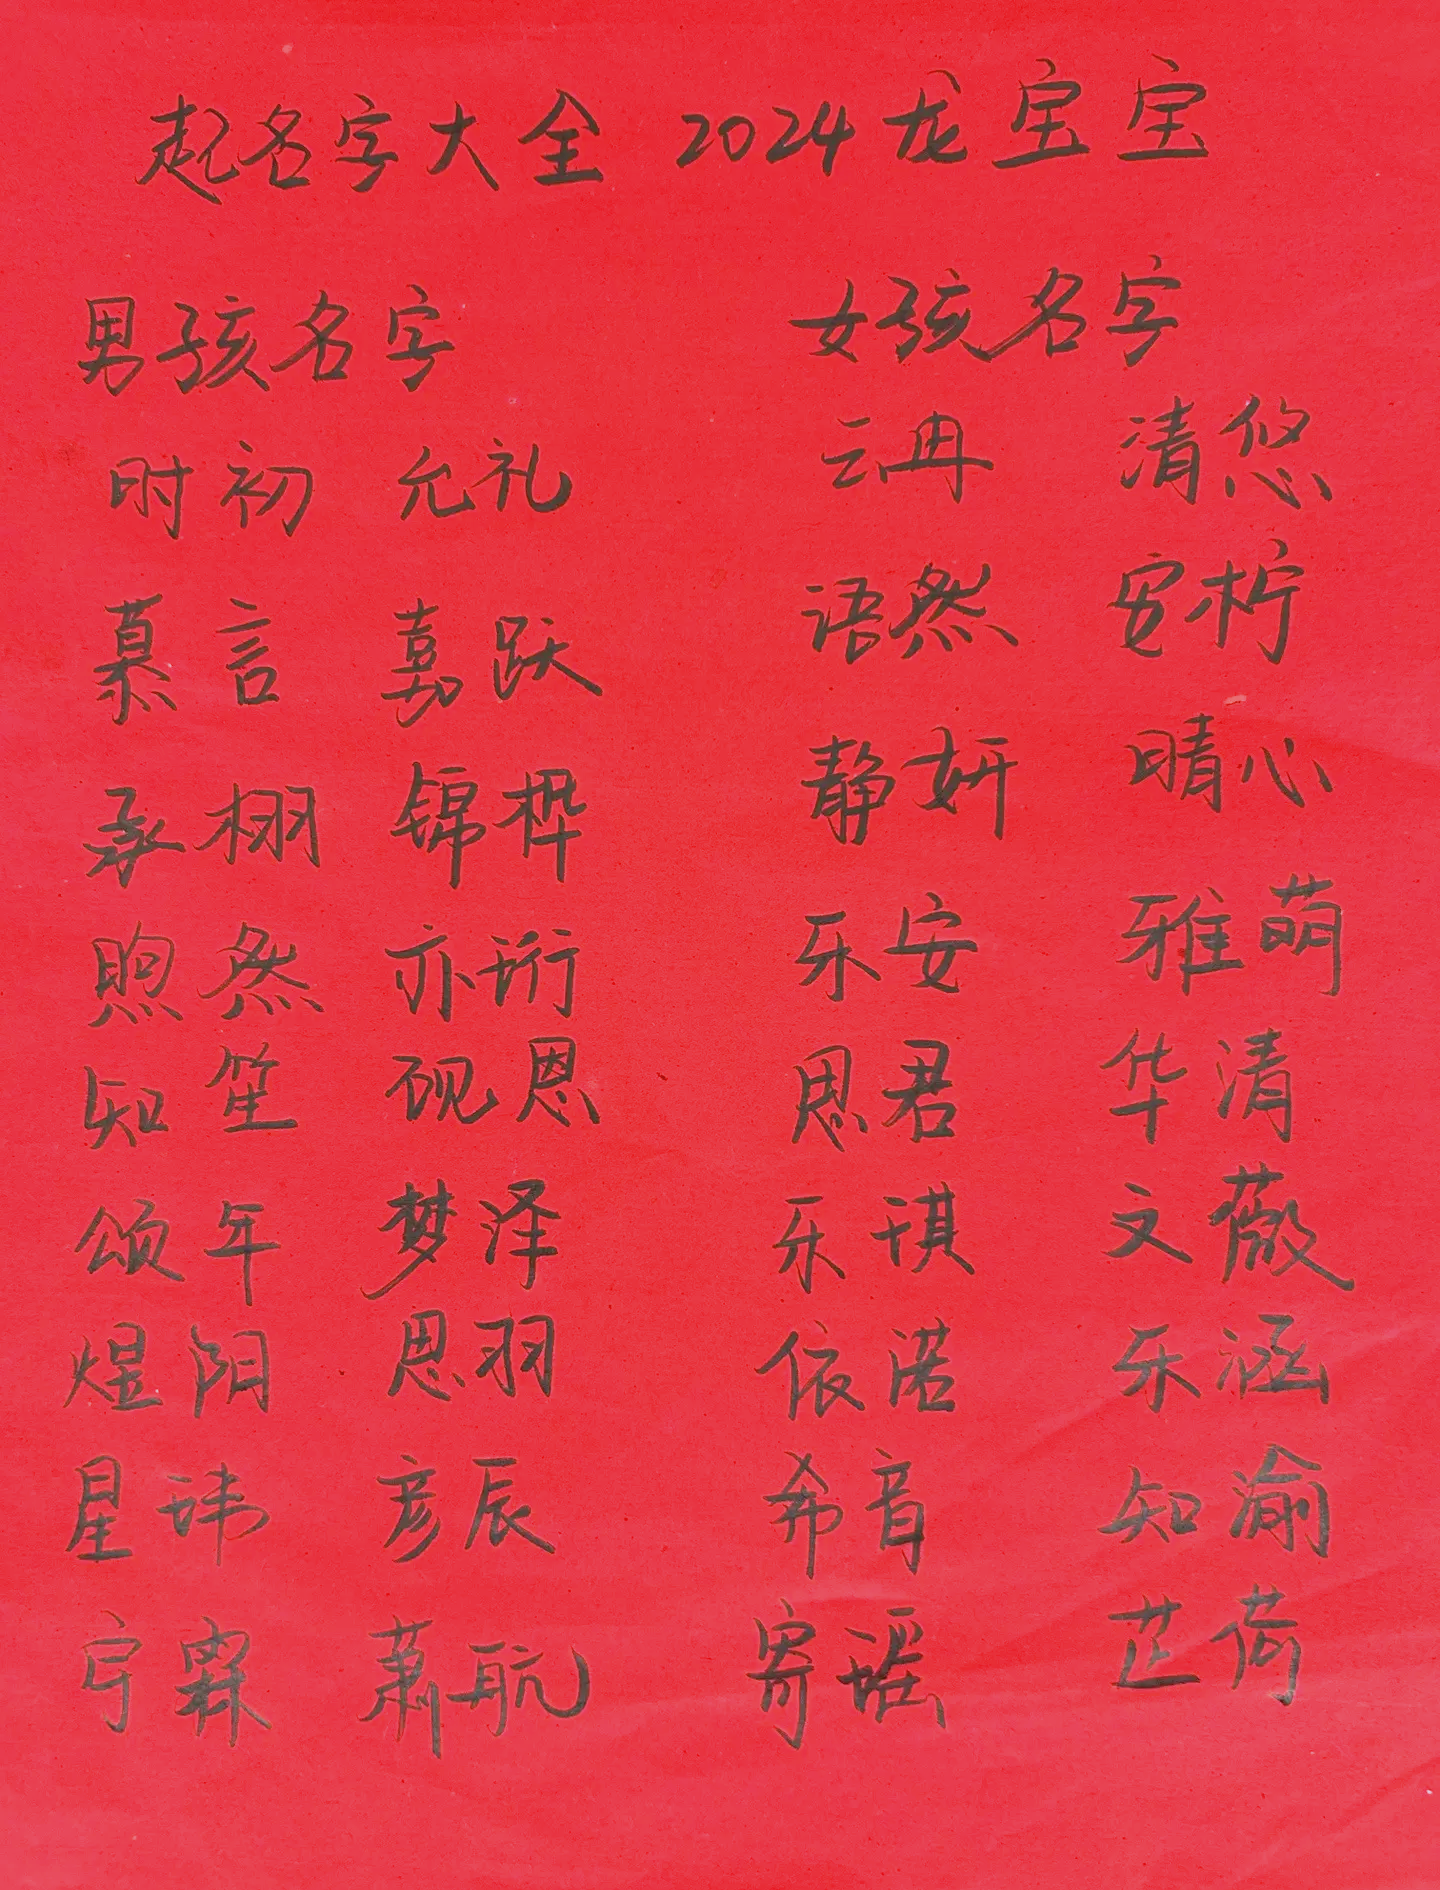 起名字大全 2024龙宝宝
男孩名字 女孩名字
时初 允礼 云冉 清悠
慕言 嘉跃 语然 安柠
承栩 锦桦 静妍 晴心
煦然 亦珩 乐安 雅萌
知笙 砚恩 思君 华清
颂年 梦泽 乐琪 文薇
煜阳 思羽 依诺 乐涵
星玮 彦辰 希音 知渝
宇霖 萧航 寄瑶 芷荷